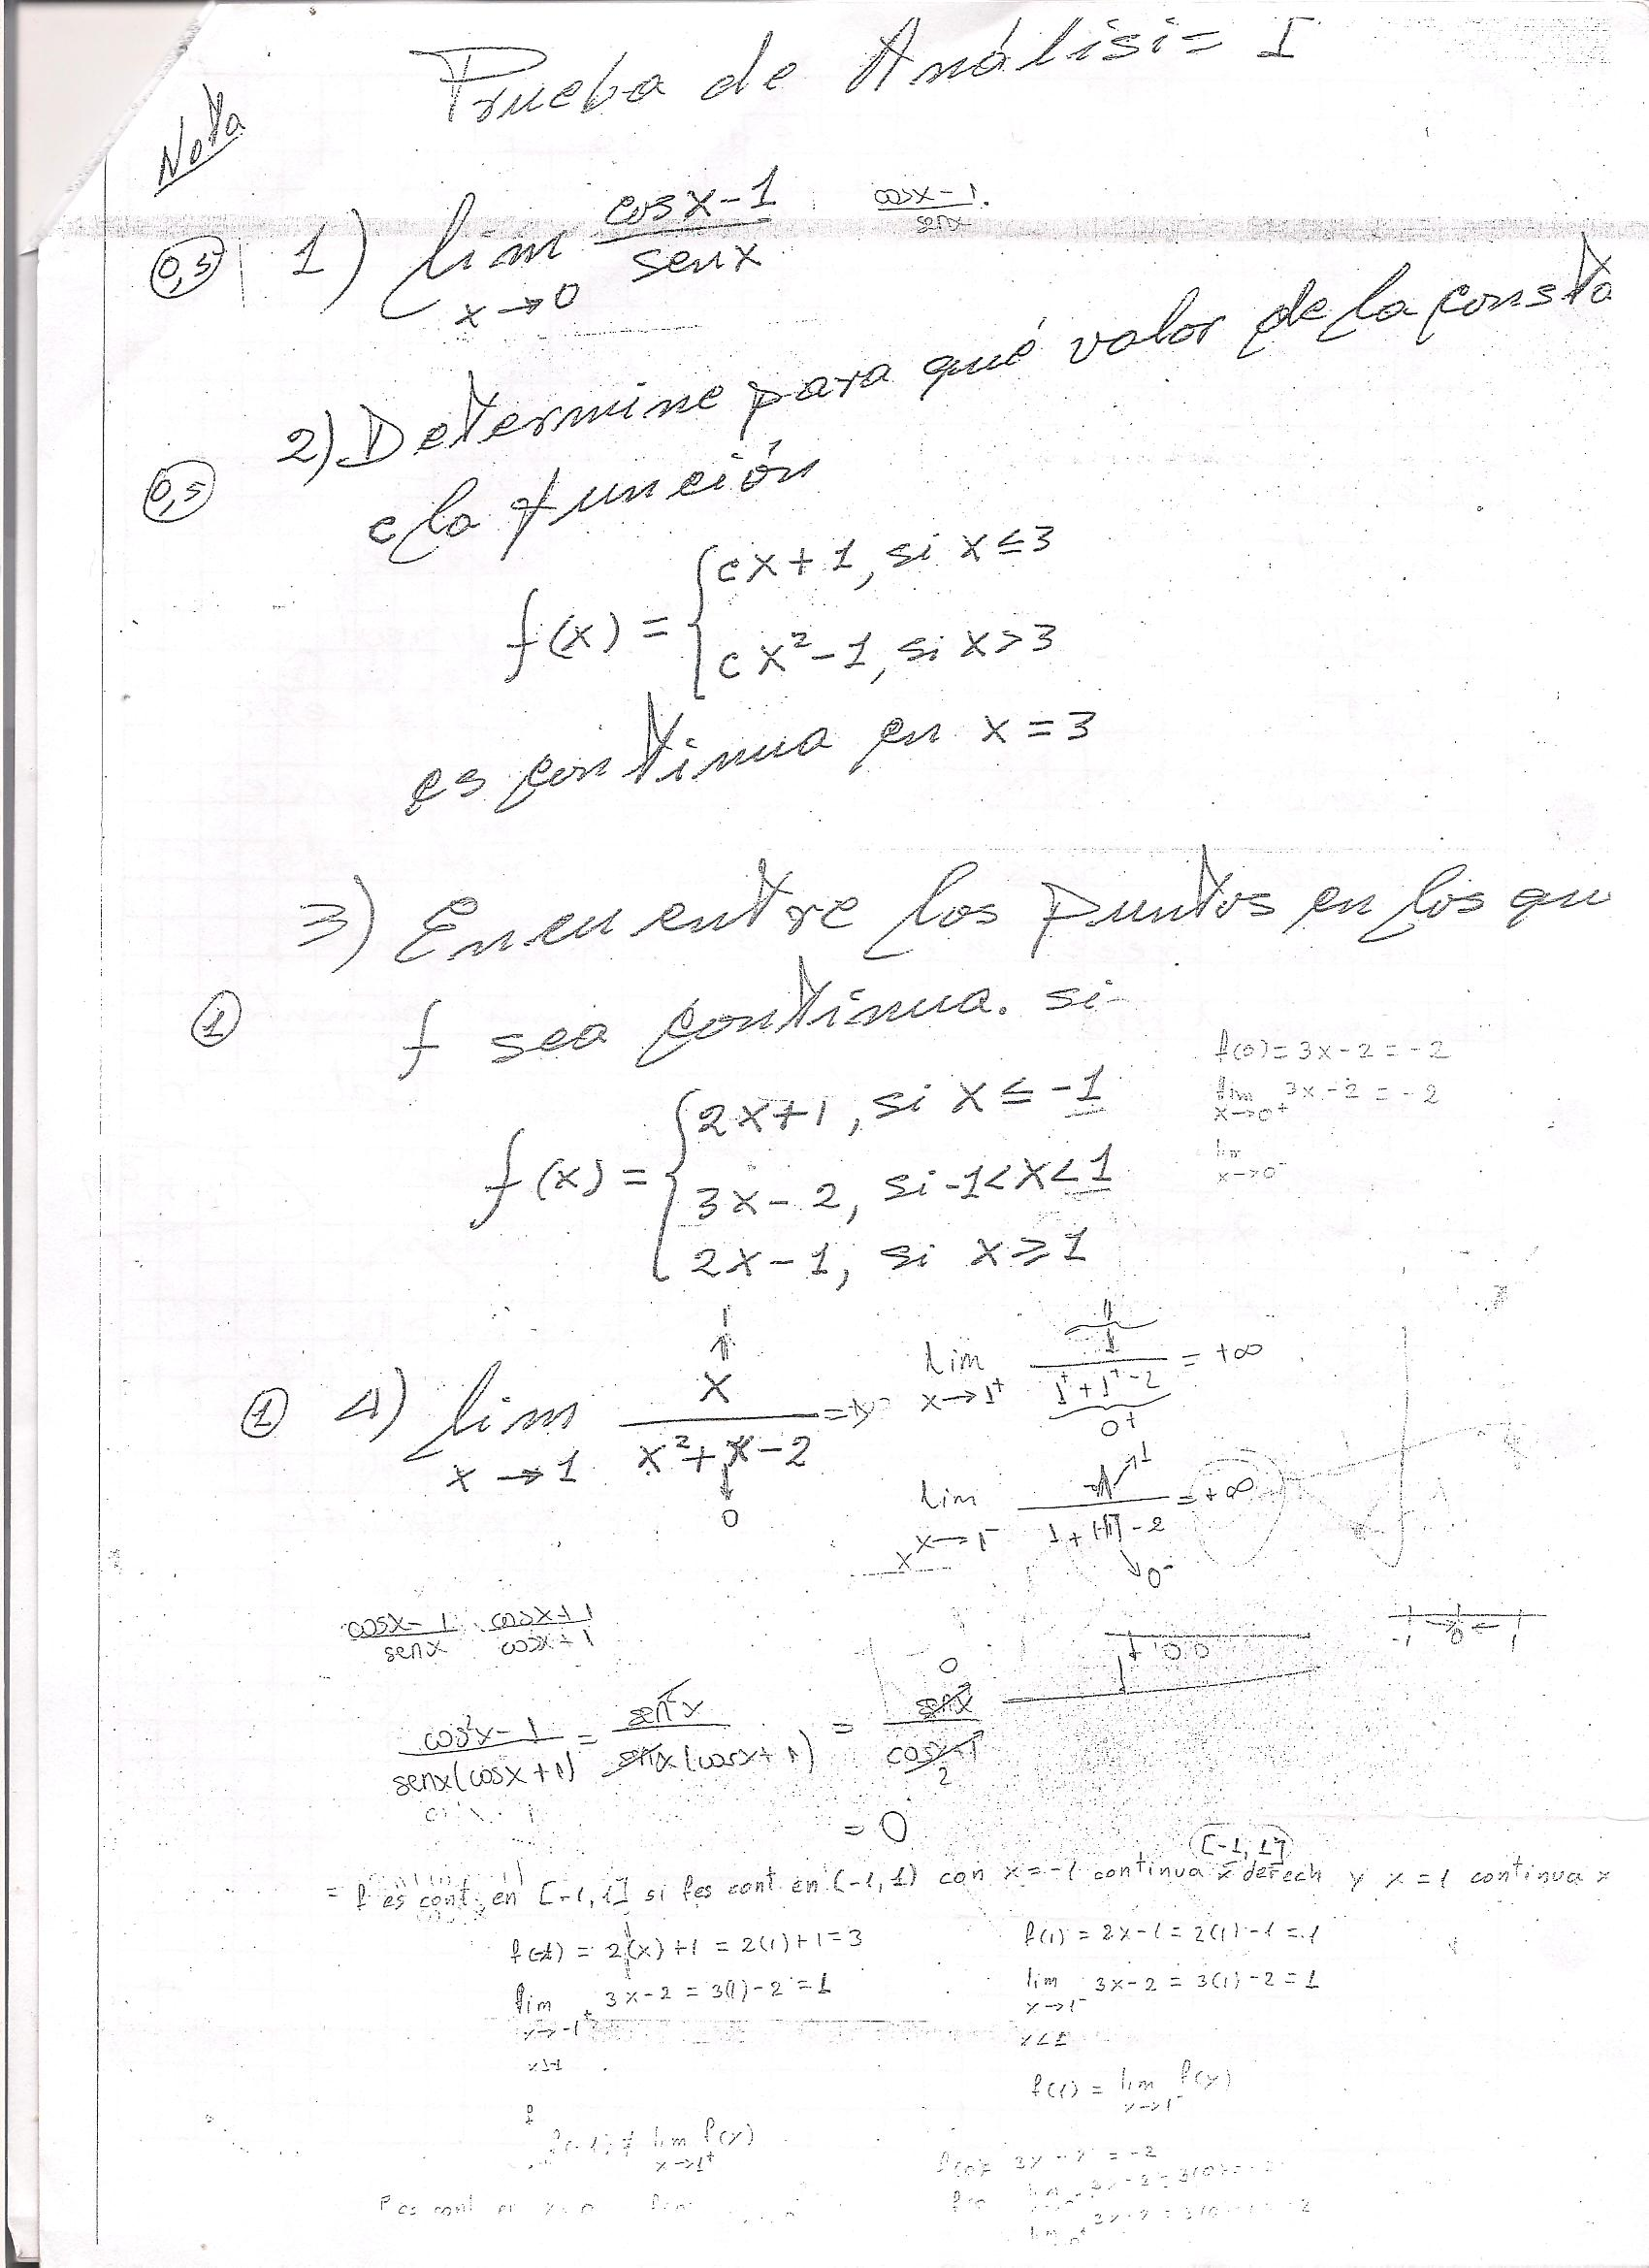 Prueba de Análisis I
Nota
0,5 1) lim x→0 cosx-1 / senx
cosx-1. / senx
2) Determine para qué valor de la consta
0,5
c la función
f(x) = { cx+1, si x≤3
cx²-1, si x>3
es continua en x=3
3) Encuentre los puntos en los qu
1
f sea continua. si
f(0)=3x-2=-2
lim x→0⁺ 3x-2=-2
lim x→0⁻
f(x) = { 2x+1, si x≤-1
3x-2, si -1<x<1
2x-1, si x≥1
1 4) lim x→1 x / x²+x-2
1
0
lim x→1⁺ 1 / 1⁺+1⁺-2 = +∞
0⁺
lim x→1⁻ 1 / 1+1-2 = +∞
0⁻
x
cosx-1 / senx cosx+1 / cosx+1
-1 0 1
cos²x-1 / senx(cosx+1) = sen²x / senx(cosx+1) = senx / cosx+1
0
2
= 0
[-1, 1]
= f es cont. en [-1, 1] si f es cont en (-1, 1) con x=-1 continua x derech y x=1 continua x
f(-1) = 2(x)+1 = 2(1)+1=3
f(1) = 2x-1 = 2(1)-1=1
lim x→-1⁺ 3x-2 = 3(1)-2=1
lim x→1⁻ 3x-2 = 3(1)-2=1
x<1
f(1) = lim x→1⁻ f(x)
lim x→1⁺ f(x)